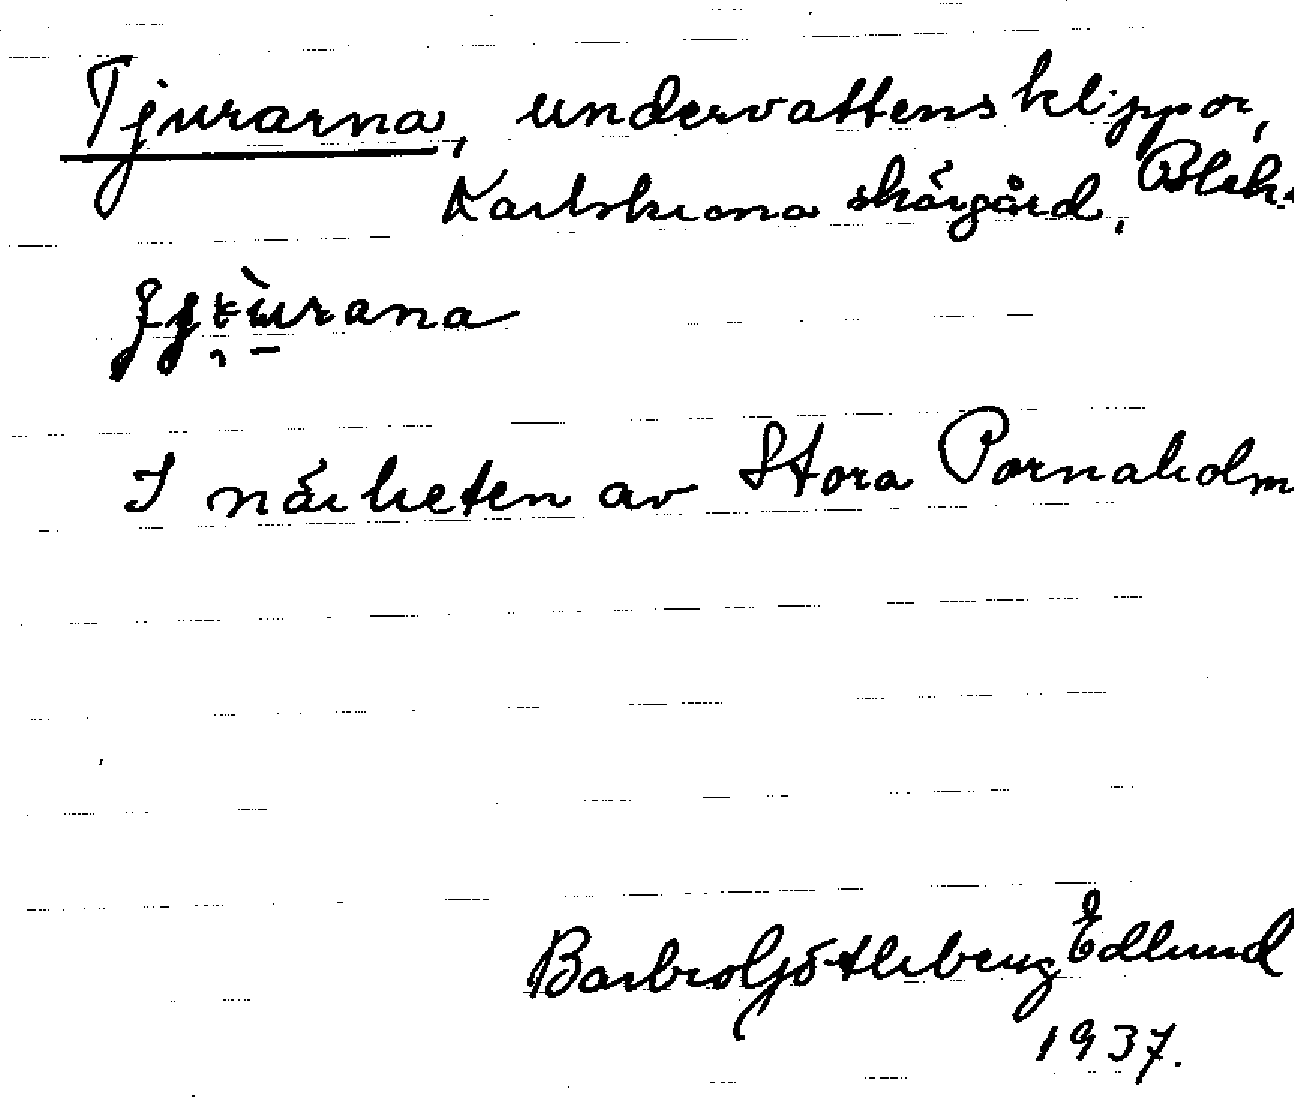 Tjurarna, undervattensklippor,
Karlskrona skärgård, Blek.
I närheten av Stora Pornaholm
Barbro Götleberg Edlund
1937.